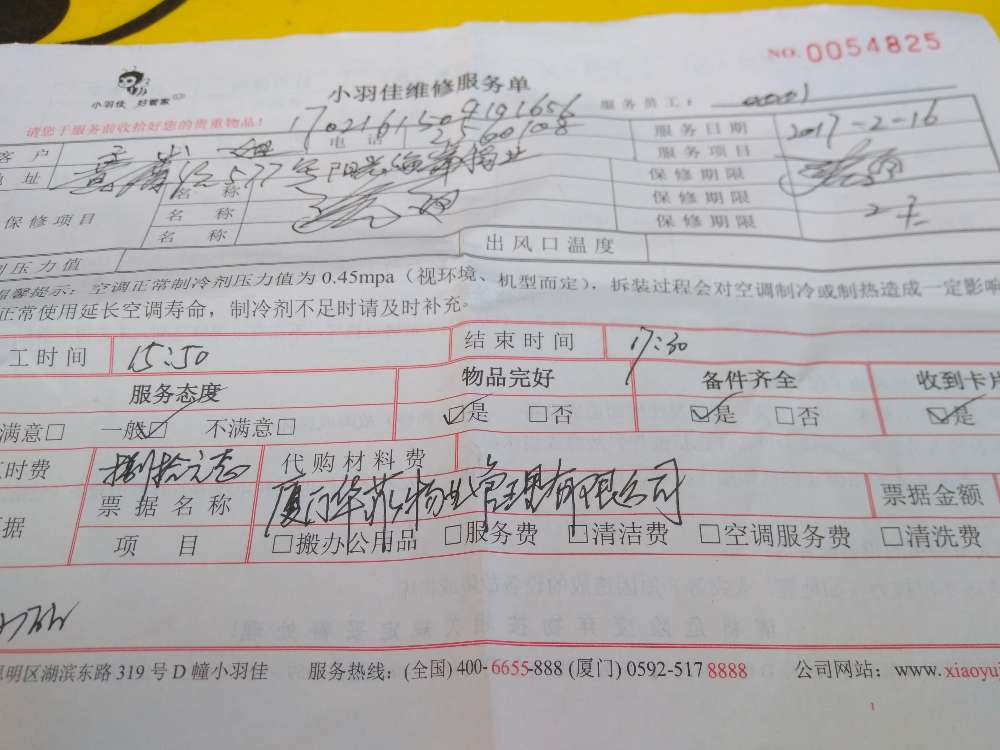 NO. 0054825
小羽佳 好管家
小羽佳维修服务单
服务员工：
请您于服务前收拾好您的贵重物品！
客 户
小姐
电 话
服务日期 2017-2-16
地 址
577号阳光海岸物业
服务项目
保修项目
名 称
保修期限
名 称
保修期限
名 称
保修期限
压力值
出风口温度
馨提示：空调正常制冷剂压力值为 0.45mpa（视环境、机型而定），拆装过程会对空调制冷或制热造成一定影响
正常使用延长空调寿命，制冷剂不足时请及时补充。
工时间 15:50 结束时间 17:30
服务态度 物品完好 备件齐全 收到卡片
满意□ 一般☑ 不满意□ ☑是 □否 ☑是 □否 ☑是
时费 捌拾元 代购材料费
据 票据名称 厦门华菲物业管理有限公司 票据金额
项 目 □搬办公用品 □服务费 □清洁费 □空调服务费 □清洗费
明区湖滨东路 319 号 D 幢小羽佳 服务热线：(全国) 400-6655-888 (厦门) 0592-517 8888 公司网站：www.xiaoyu
1